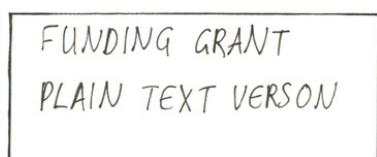 FUNDING GRANT
PLAIN TEXT VERSON